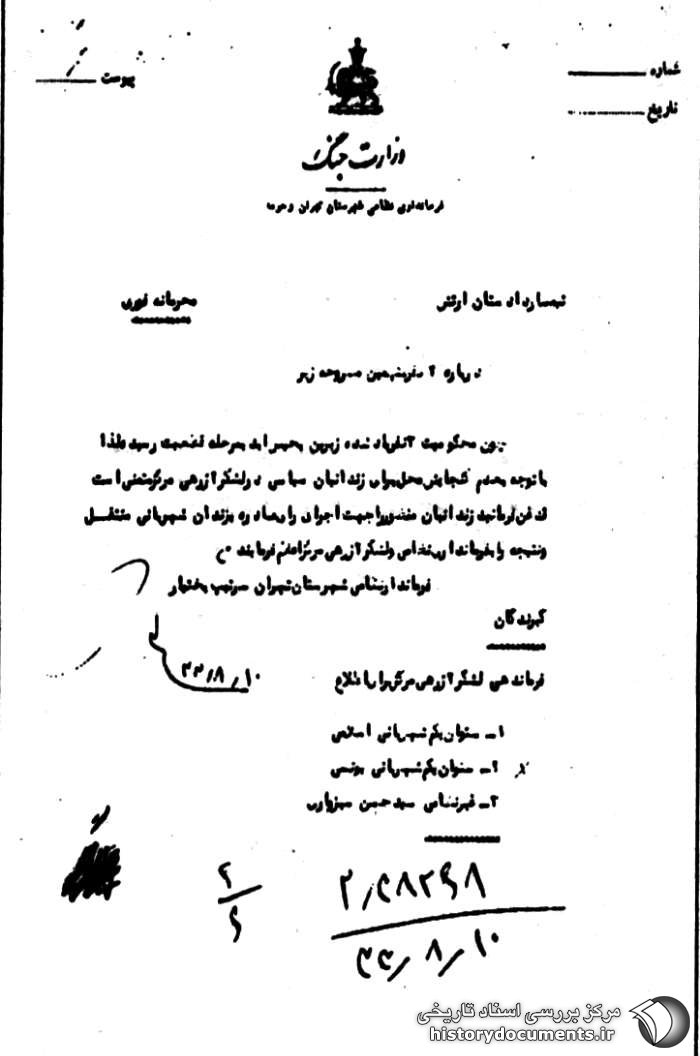 شماره
تاریخ
پیوست
وزارت جنگ
فرمانداری نظامی شهرستان تهران و حومه
تیمسار دادستان ارتش
محرمانه فوری
درباره ۳ نفر متهمین مشروحه زیر
چون محکومیت ۳ نفر یاد شده زیرین به مرحله قطعیت رسیده لذا
با توجه بعدم گنجایش محل برای زندانیان سیاسی در لشکر ۲ زرهی مرکز متمنی است
قدغن فرمائید زندانیان منظور را جهت اجرای رای صادره بزندان شهربانی منتقل
و نتیجه را بفرمانداری نظامی و لشکر ۲ زرهی مرکز اعلام فرمایند
فرماندار نظامی شهرستان تهران سرتیپ بختیار
گیرندگان
فرماندهی لشگر ۲ زرهی مرکز برای اطلاع
۳۳/۸/۱۰
۱ـ ستوان یکم شهربانی اسلامی
۲ـ ستوان یکم شهربانی یونسی
۳ـ غیرنظامی سید حسن سبزواری
۳۳/۸/۱۰
مرکز بررسی اسناد تاریخی
historydocuments.ir